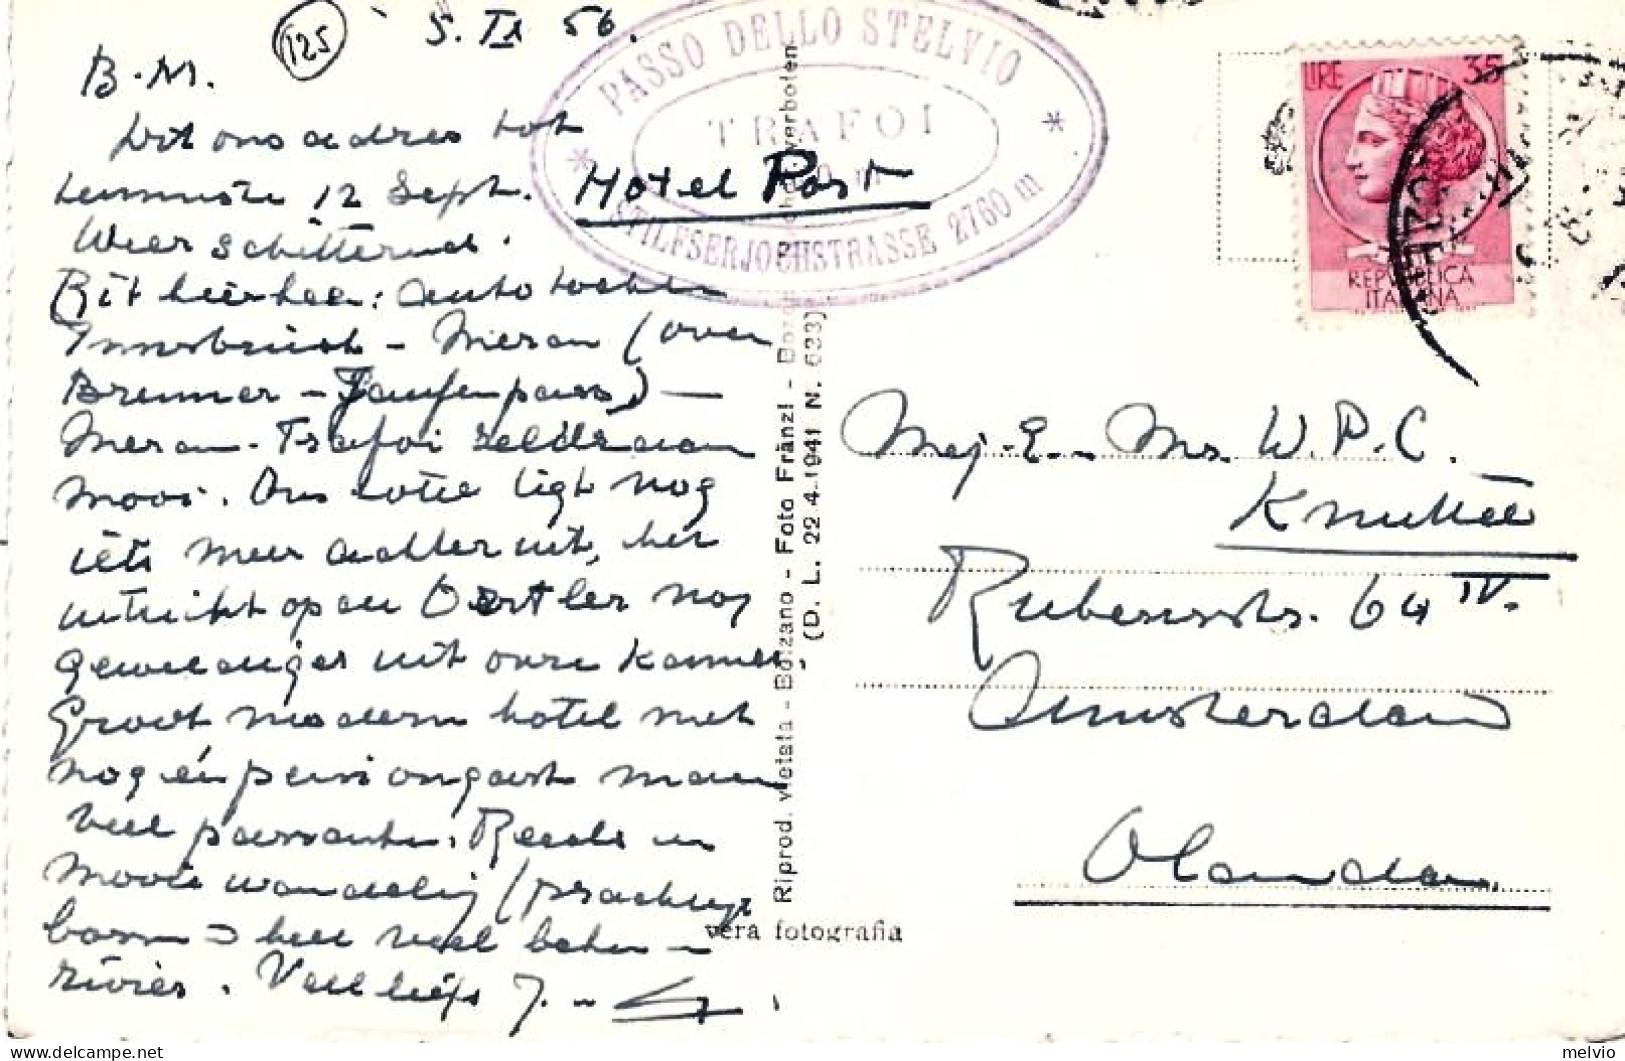 125
5. IX 56.
B.M.
Dit ons adres tot
tenminste 12 Sept. Hotel Post
Weer schitterend.
Rit hierheen: autotochten
Innsbruck - Meran (over
Brenner - Jaufenpass) -
Meran - Trafoi zeldzaam
mooi. Ons hotel ligt nog
iets meer achteruit, het
uitzicht op den Oertler nog
geweldiger uit onze kamer.
Groot modern hotel met
nog één pensiongast maar
veel passanten. Reeds een
mooie wandeling (prachtige
boomen heel veel beken en
rivier. Veel liefs J.
PASSO DELLO STELVIO
TRAFOI
STILFSERJOCHSTRASSE 2760 m
LIRE 35
REPUBBLICA
ITALIANA
Riprod. vietata - Bolzano - Foto Fränzl - verboten
(D. L. 22-4-1941 N. 633)
vera fotografia
Mej. E. - Mr. W.P.C.
Knuttel
Rubensstr. 64 IV.
Amsterdam
Olanda
melvio
www.delcampe.net